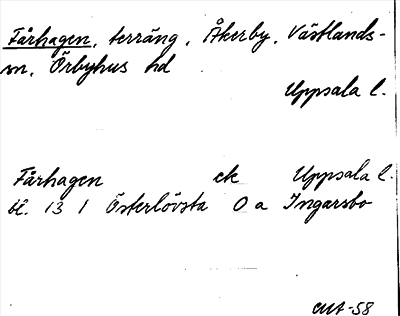 Fårhagen, terräng, Åkerby, Västlands-
sn, Örbyhus hd
Uppsala l.
Fårhagen ek Uppsala l.
bl. 13 I Österlövsta O a Ingarsbo
-58